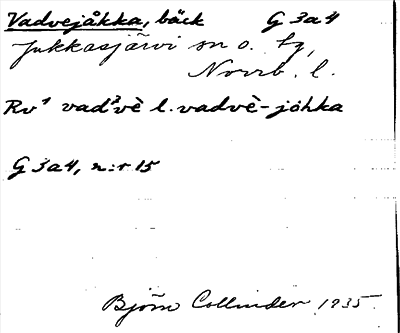 Vadvejåkka, bäck G 3a4
Jukkasjärvi sn o. tg,
Norrb. l.
Rv¹ vad²vè l. vadvè-jåhka
G 3a4, n:r 15
Björn Collinder 1935.